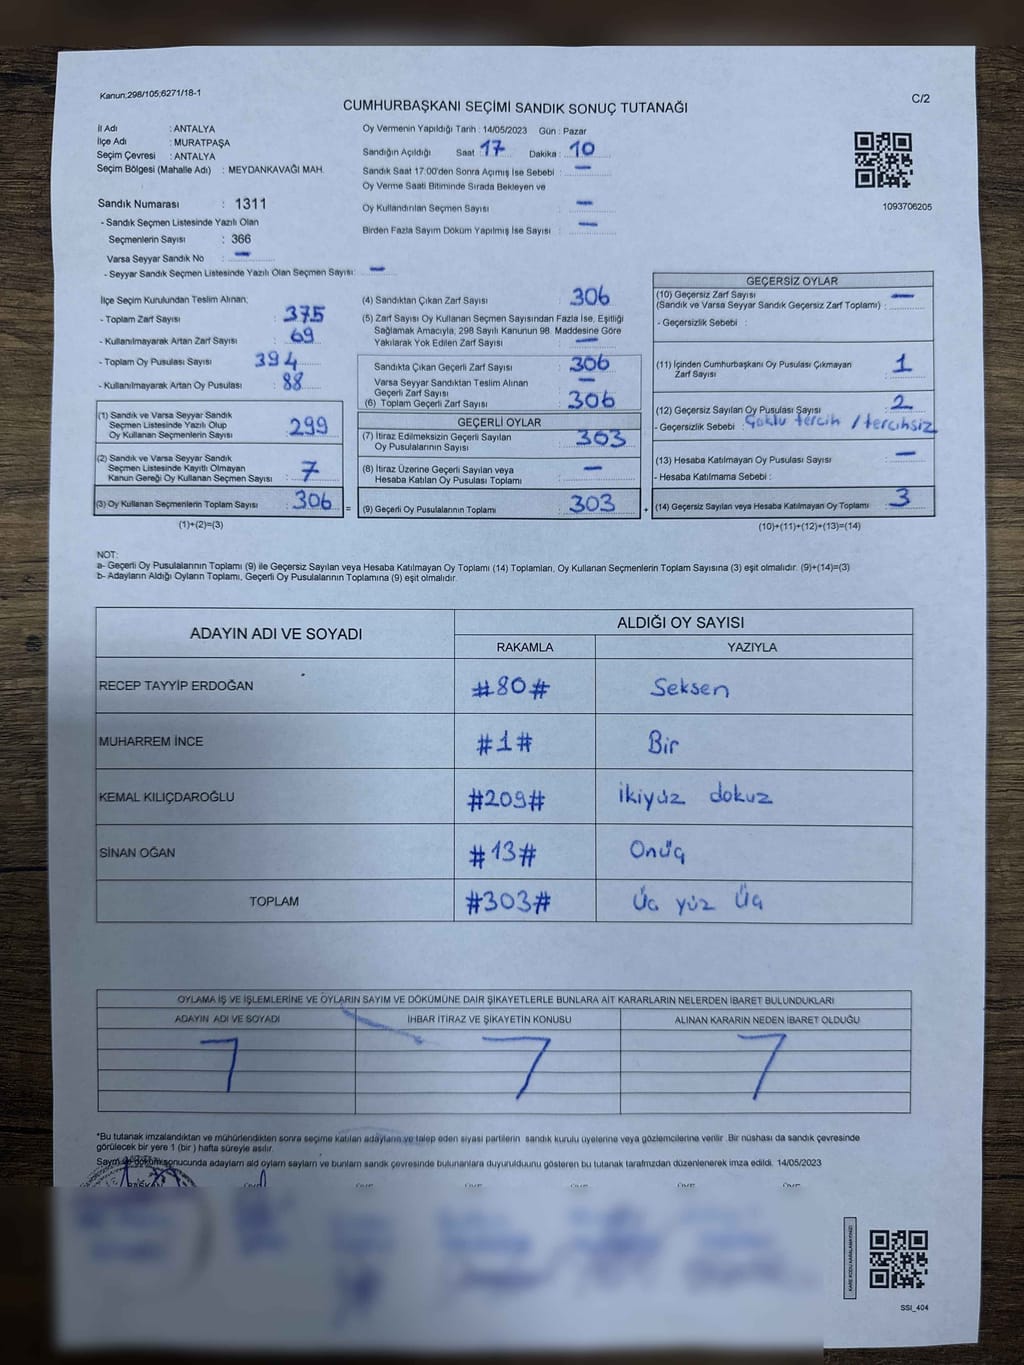 Kanun;298/105;6271/18-1
C/2
CUMHURBAŞKANI SEÇİMİ SANDIK SONUÇ TUTANAĞI
İl Adı : ANTALYA
İlçe Adı : MURATPAŞA
Seçim Çevresi : ANTALYA
Seçim Bölgesi (Mahalle Adı) : MEYDANKAVAĞI MAH.
Sandık Numarası : 1311
- Sandık Seçmen Listesinde Yazılı Olan
Seçmenlerin Sayısı : 366
Varsa Seyyar Sandık No : –
- Seyyar Sandık Seçmen Listesinde Yazılı Olan Seçmen Sayısı: –
Oy Vermenin Yapıldığı Tarih : 14/05/2023 Gün : Pazar
Sandığın Açıldığı Saat : 17 Dakika : 10
Sandık Saat 17.00'den Sonra Açımış İse Sebebi : –
Oy Verme Saati Bitiminde Sırada Bekleyen ve
Oy Kullandırılan Seçmen Sayısı : –
Birden Fazla Sayım Döküm Yapılmış İse Sayısı : –
1093706205
İlçe Seçim Kurulundan Teslim Alınan;
- Toplam Zarf Sayısı : 375
- Kullanılmayarak Artan Zarf Sayısı : 69
- Toplam Oy Pusulası Sayısı : 394
- Kullanılmayarak Artan Oy Pusulası : 88
(1) Sandık ve Varsa Seyyar Sandık
Seçmen Listesinde Yazılı Olup
Oy Kullanan Seçmenlerin Sayısı : 299
(2) Sandık ve Varsa Seyyar Sandık
Seçmen Listesinde Kayıtlı Olmayan
Kanun Gereği Oy Kullanan Seçmen Sayısı : 7
(3) Oy Kullanan Seçmenlerin Toplam Sayısı : 306 =
(1)+(2)=(3)
(4) Sandıktan Çıkan Zarf Sayısı : 306
(5) Zarf Sayısı Oy Kullanan Seçmen Sayısından Fazla İse, Eşitliği
Sağlamak Amacıyla; 298 Sayılı Kanunun 98. Maddesine Göre
Yakılarak Yok Edilen Zarf Sayısı : –
Sandıkta Çıkan Geçerli Zarf Sayısı : 306
Varsa Seyyar Sandıktan Teslim Alınan
Geçerli Zarf Sayısı : –
(6) Toplam Geçerli Zarf Sayısı : 306
GEÇERLİ OYLAR
(7) İtiraz Edilmeksizin Geçerli Sayılan
Oy Pusulalarının Sayısı : 303
(8) İtiraz Üzerine Geçerli Sayılan veya
Hesaba Katılan Oy Pusulası Toplamı : –
(9) Geçerli Oy Pusulalarının Toplamı : 303 +
GEÇERSİZ OYLAR
(10) Geçersiz Zarf Sayısı
(Sandık ve Varsa Seyyar Sandık Geçersiz Zarf Toplamı) : –
- Geçersizlik Sebebi :
(11) İçinden Cumhurbaşkanı Oy Pusulası Çıkmayan
Zarf Sayısı : 1
(12) Geçersiz Sayılan Oy Pusulası Sayısı : 2
- Geçersizlik Sebebi : Çoklu tercih / tercihsiz
(13) Hesaba Katılmayan Oy Pusulası Sayısı : –
- Hesaba Katılmama Sebebi :
(14) Geçersiz Sayılan veya Hesaba Katılmayan Oy Toplamı : 3
(10)+(11)+(12)+(13)=(14)
NOT:
a- Geçerli Oy Pusulalarının Toplamı (9) ile Geçersiz Sayılan veya Hesaba Katılmayan Oy Toplamı (14) Toplamları, Oy Kullanan Seçmenlerin Toplam Sayısına (3) eşit olmalıdır. (9)+(14)=(3)
b- Adayların Aldığı Oyların Toplamı, Geçerli Oy Pusulalarının Toplamına (9) eşit olmalıdır.
ADAYIN ADI VE SOYADI ALDIĞI OY SAYISI
RAKAMLA YAZIYLA
RECEP TAYYİP ERDOĞAN #80# Seksen
MUHARREM İNCE #1# Bir
KEMAL KILIÇDAROĞLU #209# ikiyüz dokuz
SİNAN OĞAN #13# Onüç
TOPLAM #303# Üç yüz Üç
OYLAMA İŞ VE İŞLEMLERİNE VE OYLARIN SAYIM VE DÖKÜMÜNE DAİR ŞİKAYETLERLE BUNLARA AİT KARARLARIN NELERDEN İBARET BULUNDUKLARI
ADAYIN ADI VE SOYADI İHBAR İTİRAZ VE ŞİKAYETİN KONUSU ALINAN KARARIN NEDEN İBARET OLDUĞU
*Bu tutanak imzalandıktan ve mühürlendikten sonra seçime katılan adayların ve talep eden siyasi partilerin sandık kurulu üyelerine veya gözlemcilerine verilir. Bir nüshası da sandık çevresinde
görülecek bir yere 1 (bir ) hafta süreyle asılır.
Sayım ve döküm sonucunda adaylarn ald oylarn saylarn ve bunlarn sandık çevresinde bulunanlara duyurulduunu gösteren bu tutanak tarafmzdan düzenlenerek imza edildi. 14/05/2023
BAŞKAN ÜYE ÜYE ÜYE ÜYE ÜYE ÜYE
SSI_404